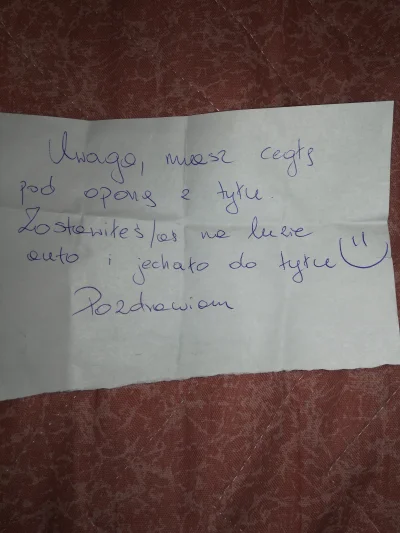 Uwaga, masz cegłę
pod oponą z tyłu.
Zostawiłeś/aś na luzie
auto i jechało do tyłu
Pozdrawiam